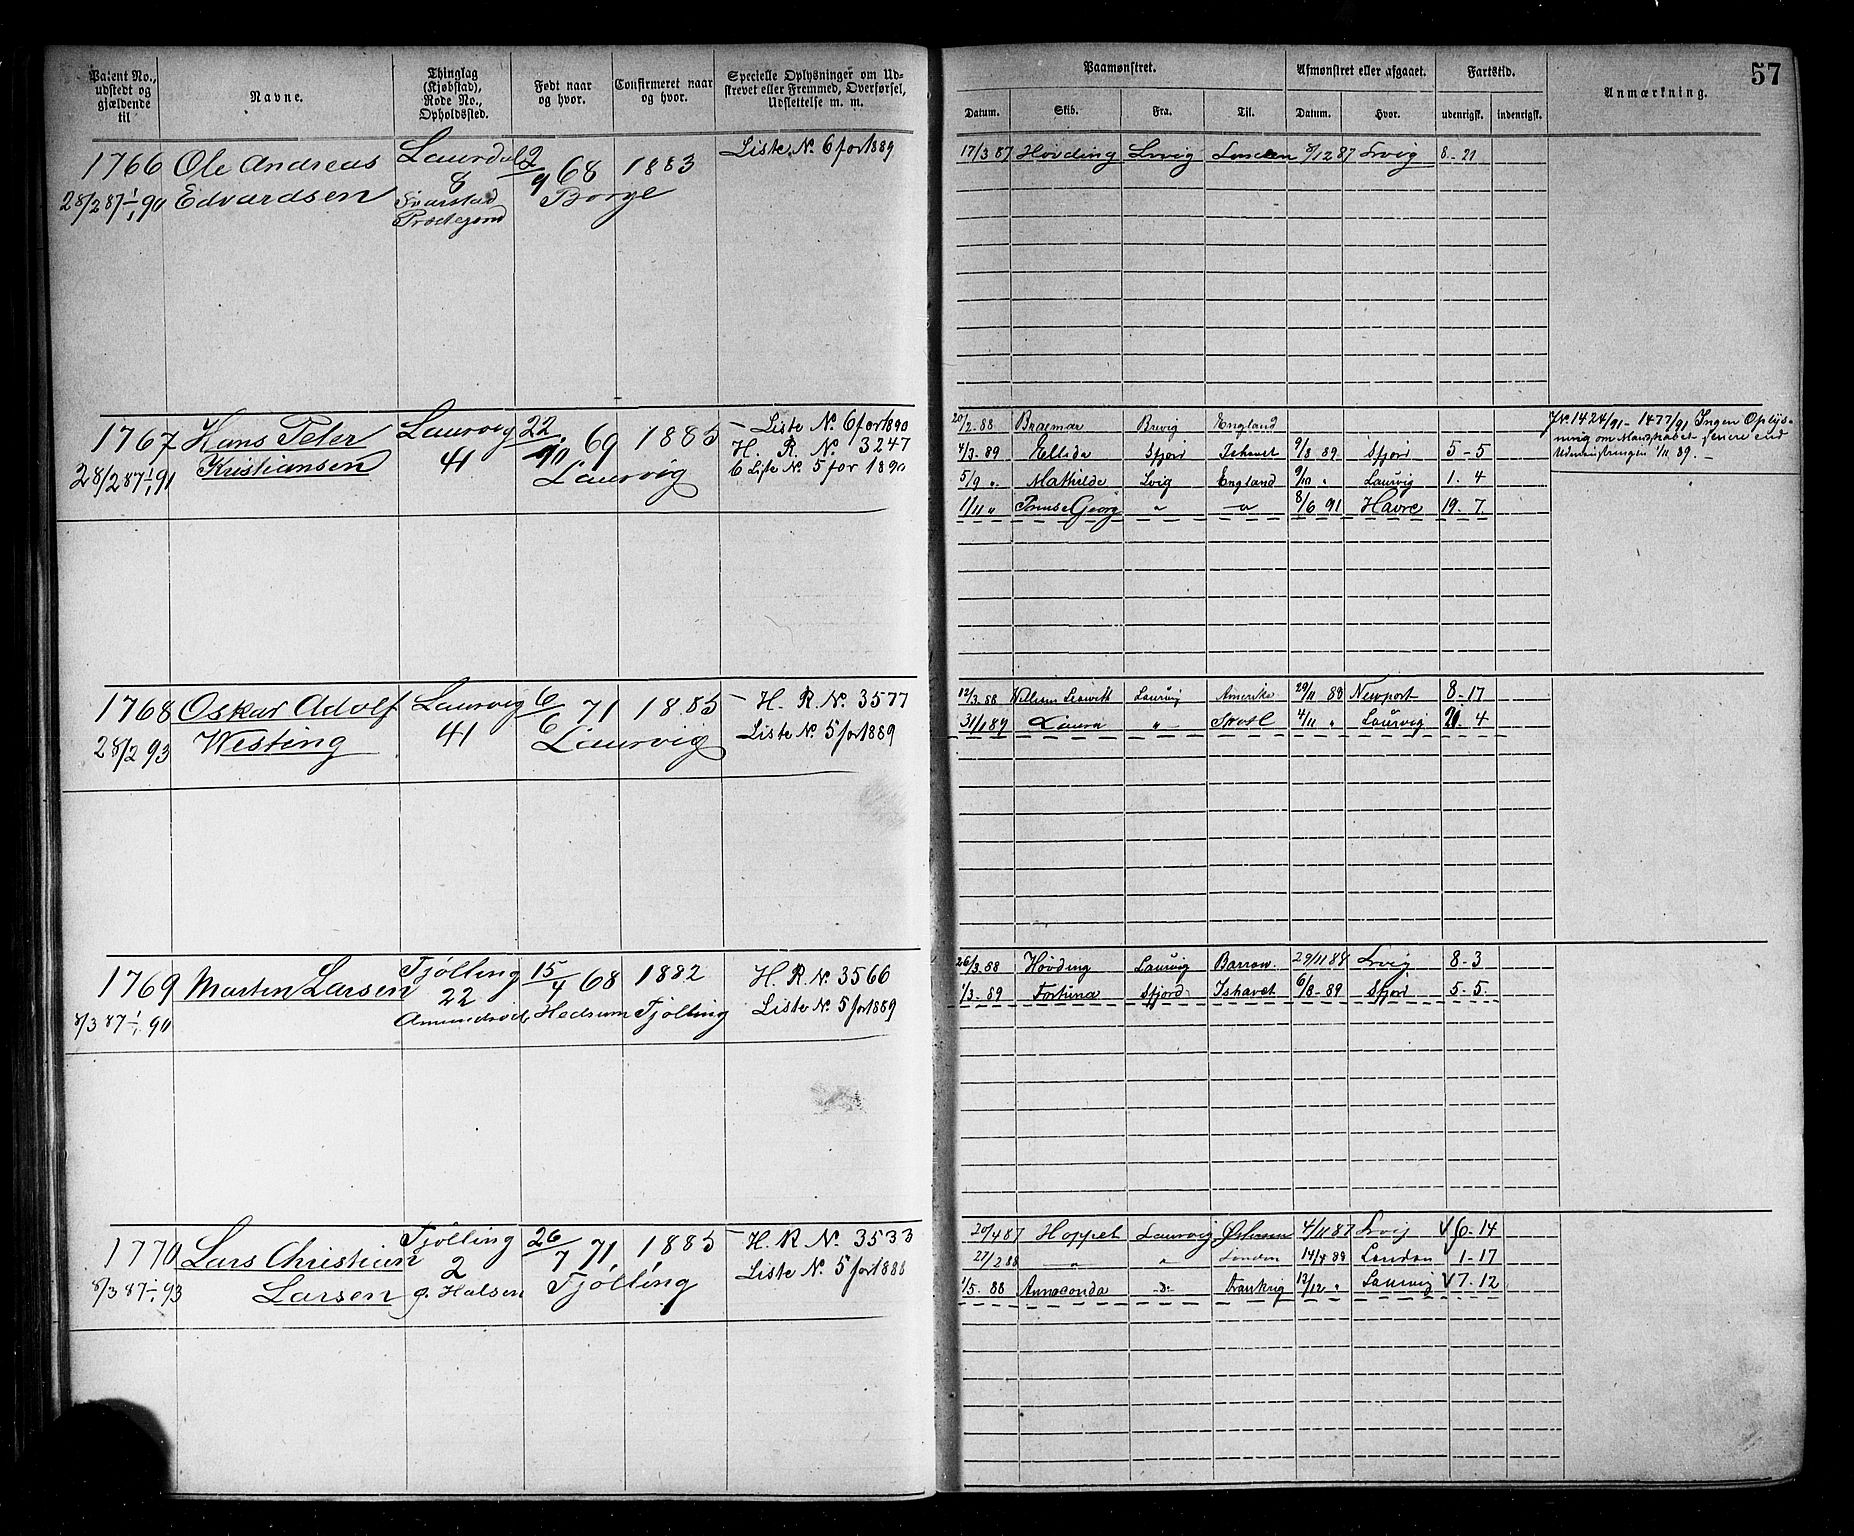 Patent No., udstedt og gjældende til
Navne.
Thinglag (Kjøbstad), Rode No., Opholdssted.
Født naar og hvor.
Confirmeret naar og hvor.
Specielle Oplysninger om Udstrevet eller Fremmed, Overførsel, Udslettelse m. m.
Paamønstret.
Afmønstret eller afgaaet.
Fartstid.
Anmærkning.
57
Datum.
Skib.
Fra.
Til.
Datum.
Hvor.
udenrigsk.
indenrigsk.
1766 Ole Andreas Laurdal 2/9 68 1883 Liste No. 6 for 1889
28/2 87 1/1 90 Edvardsen 8 Borge
Svarstad
17/3 87 Høvding Lvig London 8/12 87 Lvig 8-21
1767 Hans Peter Laurvig 22/10 69 1885 - Liste No. 6 for 1890
28/2 87 1/1 91 Kristiansen 41 Laurvig H. R. No. 3247
6 Liste No. 5 for 1890
20/2 88 Braemar Brevig England
4/3 89 Ellida Sfjord Ishavet 9/8 89 Sfjord 5-5
5/9 " Mathilde Lvig England 9/10 " Laurvig 1. 4
1/11 " Prinds Georg " — " 8/6 91 Havre 19. 7
JNo 1424/91 - 1477/91 Ingen Oplys-
ning om Mandskabet senere end
Udmønstringen 1/11 89. -
1768 Oskar Adolf Laurvig 6/6 71 1885 - H. R. No. 3577
28/2 93 Westing 41 Laurvig Liste No. 5 for 1889
12/3 88 Laurvig Amerika 29/11 88 Newport 8-17
31/1 89 Laura " - 4/11 " Laurvig 4
1769 Martin Larsen Tjølling 15/4 68 1882 H. R. No. 3566
8/3 87 1/1 90 22 Hedrum Tjølling Liste No. 5 for 1889
Amundrød
26/3 88 Høvding Laurvig Barrow 29/11 88 Lvig 8-3
1/3 89 Fortuna Sfjord Ishavet 6/8 89 Sfjord 5-5
1770 Lars Christian Tjølling 26/7 71 1885 - H. R. No. 3533
8/3 87 1/1 93 Larsen 2 Tjølling Liste No. 5 for 1888
g. Halsen
20/4 87 Hoppet Laurvig 4/11 87 Lvig 6-14
27/2 88 — " " London 14/4 88 London 1-17
1/5 88 Annaconda -D- Frankrig 12/12 " Laurvig 7-12